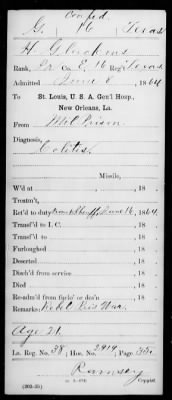 Conf'd.
G. 16 Texas
H Gluckens
Rank, Co. E, 16 Reg't Texas
Admitted June 8, 1864
To St. Louis, U. S. A. Gen'l Hosp.,
New Orleans, La.
From Mil. Prison
Diagnosis,
Colitis.
Missile,
W'd at , 18 .
Treatm't,
Ret'd to duty June 16, 1864.
Transf'd to I. C. , 18 .
Transf'd to , 18 .
Furloughed , 18 .
Deserted , 18 .
Disch'd from service , 18 .
Died , 18 .
Re-adm'd from furlo' or des'n , 18 .
Remarks: Rebel Pris War.
Age 21.
La. Reg. No. 38; Hos. No. 2919; Page
Ramsey
Copyist.